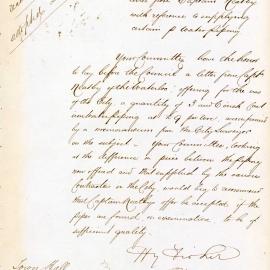 with reference to supplying
certain p water piping
Your Committee have the honor
to lay before the Council a letter from Capt
of the offering for the use
of the City, a quantity of 3 and 2 inch Cast
piping at £9 per ton, accompanied
by a memorandum from the City Surveyor
on the subject - Your Committee, looking
at the difference in price between the piping
now offered and that supplied by the
Contractor to the City would beg to recommend
that Captain offer be accepted if the
pipes are found on examination to be of
sufficient quality.
Hy Fisher
Town Hall